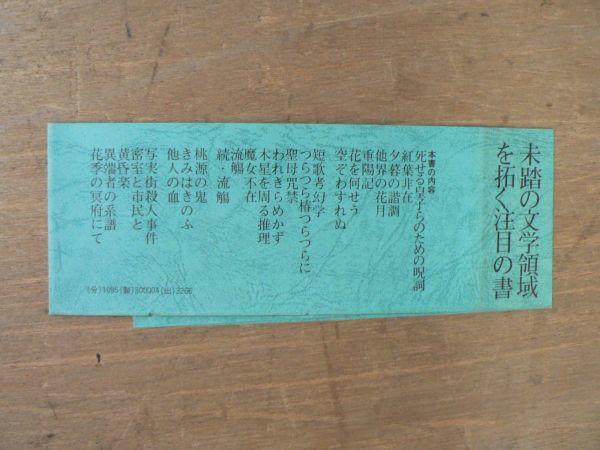 未踏の文学領域
を拓く注目の書
本書の内容
死せる皇子らのための呪詞
紅葉非在
夕暮の諧調
他界の花月
重陽記
花を何せう
空ぞわすれぬ
短歌考幻学
つらつら椿つらつらに
聖母咒禁
われきらめかず
木星を周る推理
魔女不在
流觴
続・流觴
桃源の鬼
きみはきのふ
他人の血
写実街殺人事件
密室と市民と
黄昏楽
異端者の系譜
花季の冥府にて
(分)1095(製)300004(出)3266